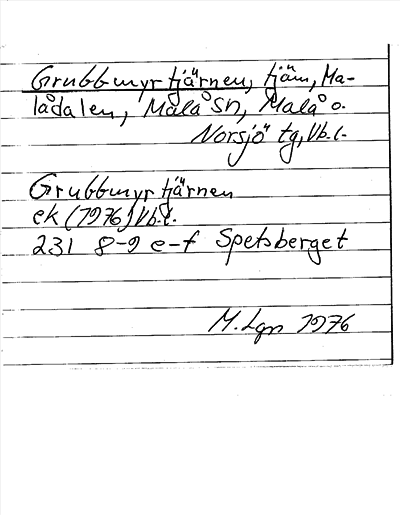 Grubbmyrtjärnen, tjärn, Ma-
lådalen, Malå sn, Malå o.
Norsjö tg, Vb.l.
Grubbmyrtjärnen
ek (1976) Vb.l.
231 8-9 e-f Spetsberget
M. Lgn 1976